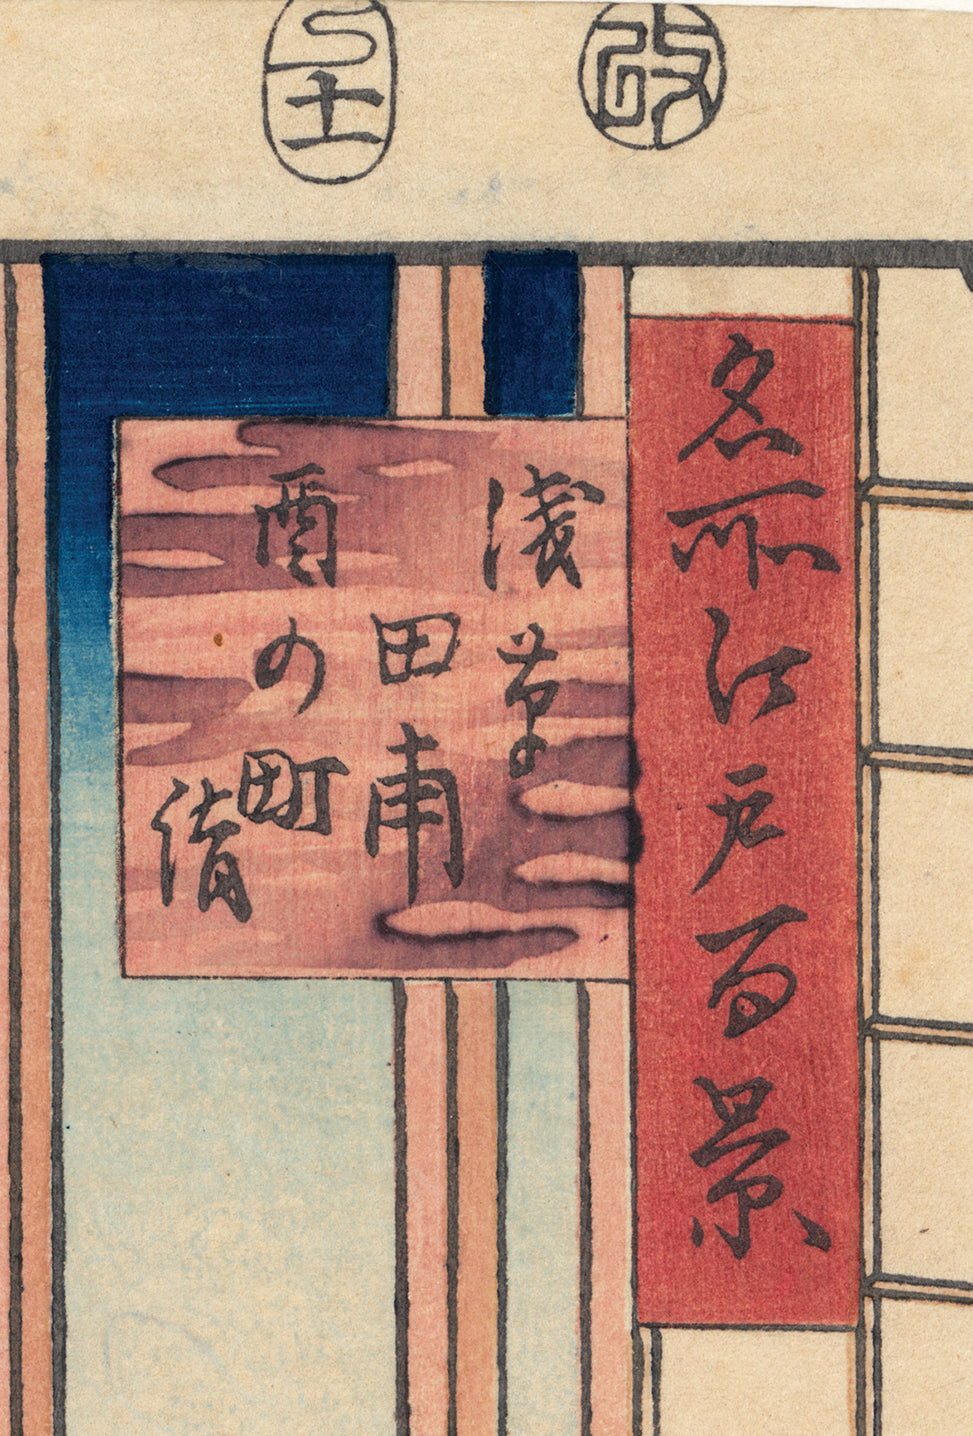 改
巳十一
名所江戸百景
淺草
田甫
酉の町
詣